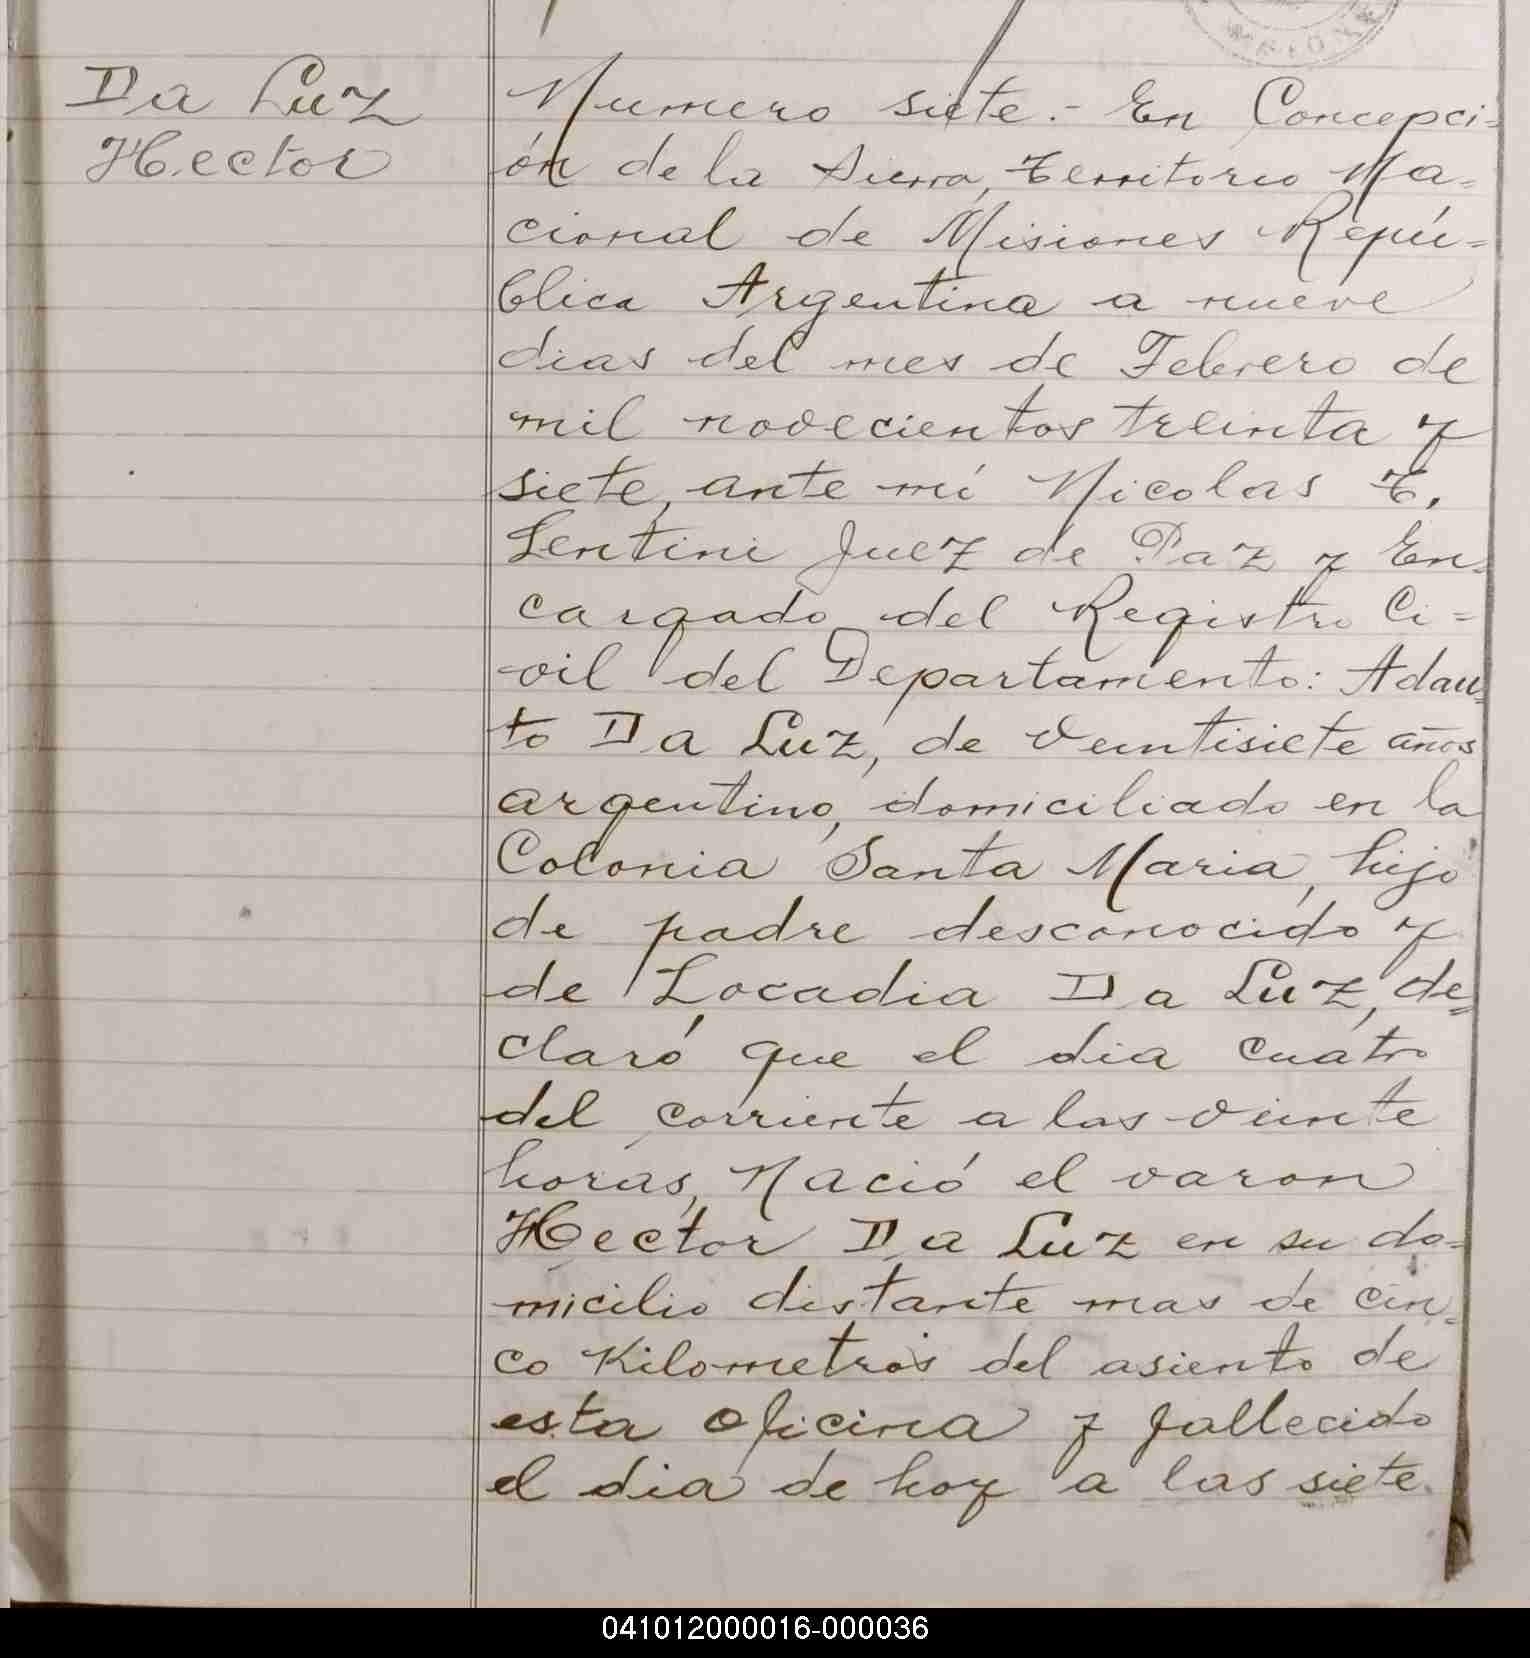 Da Luz
Hector
Numero siete.- En Concepci-
ón de la Sierra, Territorio Na-
cional de Misiones Repú=
blica Argentina a nueve
dias del mes de Febrero de
mil novecientos treinta y
siete, ante mí Nicolas T.
Lentini Juez de Paz y En-
cargado del Registro Ci=
vil del Departamento: Adau-
to Da Luz, de veintisiete años
argentino, domiciliado en la
Colonia Santa Maria, hijo
de padre desconocido y
de Locadia Da Luz, de=
claró que el dia cuatro
del corriente a las veinte
horas, nació el varon
Hector Da Luz en su do-
micilio distante mas de cin-
co Kilometros del asiento de
esta oficina y fallecido
el dia de hoy a las siete
041012000016-000036